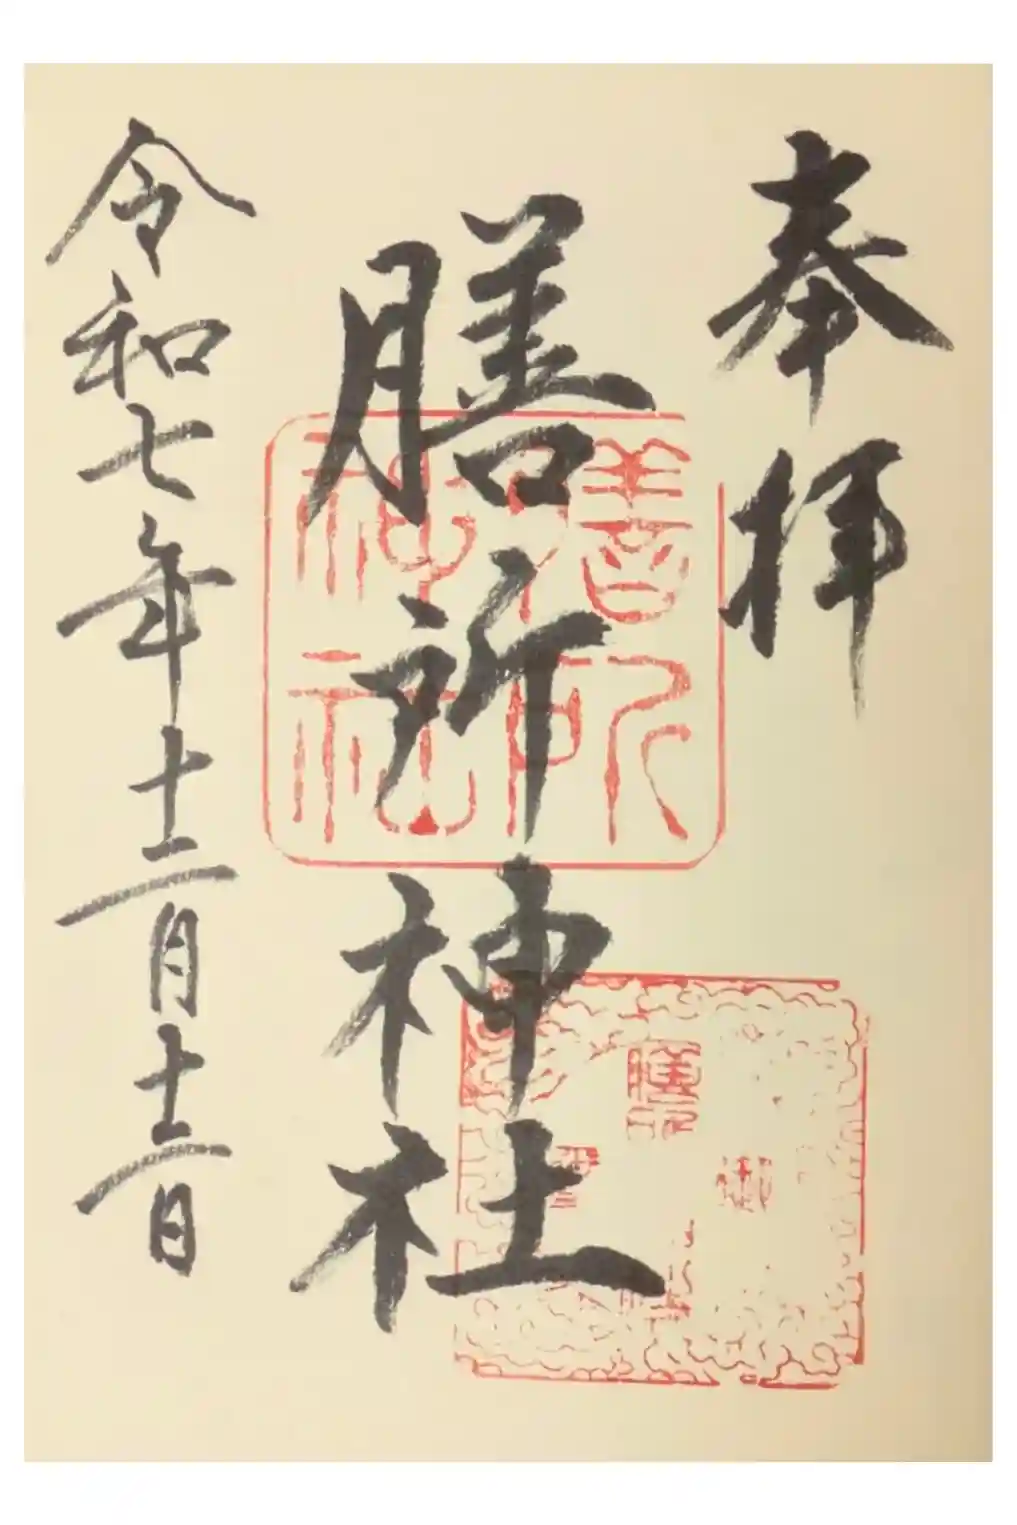 奉拝
膳所神社
令和七年十二月十二日
膳所
神社